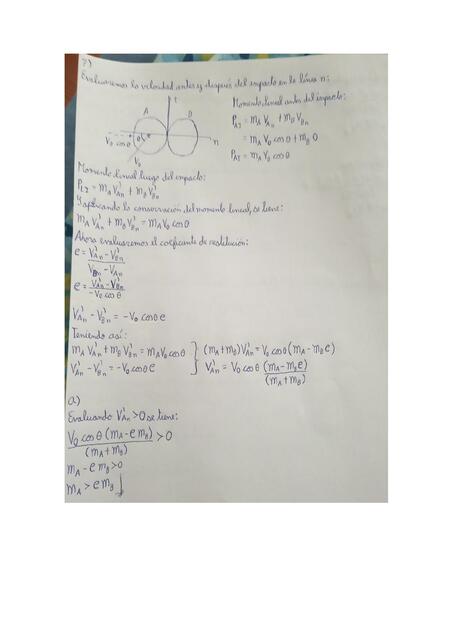 7)
Evaluaremos la velocidad antes y después del impacto en la línea n:
t
A
B
n
V₀ cos θ
θ
V₀
Momento lineal antes del impacto:
= m_A V_An + m_B V_Bn
= m_A V₀ cos θ + m_B 0
= m_A V₀ cos θ
Momento lineal luego del impacto:
= m_A V'_An + m_B V'_Bn
Y aplicando la conservación del momento lineal, se tiene:
m_A V'_An + m_B V'_Bn = m_A V₀ cos θ
Ahora evaluaremos el coeficiente de restitución:
e = (V'_An - V'_Bn) / (V_Bn - V_An)
e = (V'_An - V'_Bn) / (-V₀ cos θ)
V'_An - V'_Bn = -V₀ cos θ e
Teniendo así:
m_A V'_An + m_B V'_Bn = m_A V₀ cos θ } (m_A + m_B) V'_An = V₀ cos θ (m_A - m_B e)
V'_An - V'_Bn = -V₀ cos θ e } V'_An = V₀ cos θ (m_A - m_B e) / (m_A + m_B)
a)
Evaluando V'_An > 0 se tiene:
V₀ cos θ (m_A - e m_B) / (m_A + m_B) > 0
m_A - e m_B > 0
m_A > e m_B